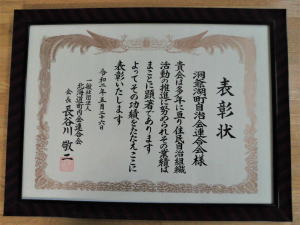 表彰状
洞爺湖町自治会連合会様
貴会は多年に亘り住民自治組織
活動の推進に努められその業績は
まことに顕著であります
よってその功績をたたえここに
表彰いたします
令和三年五月二十六日
一般社団法人
北海道町内会連合会
会長 長谷川敬二